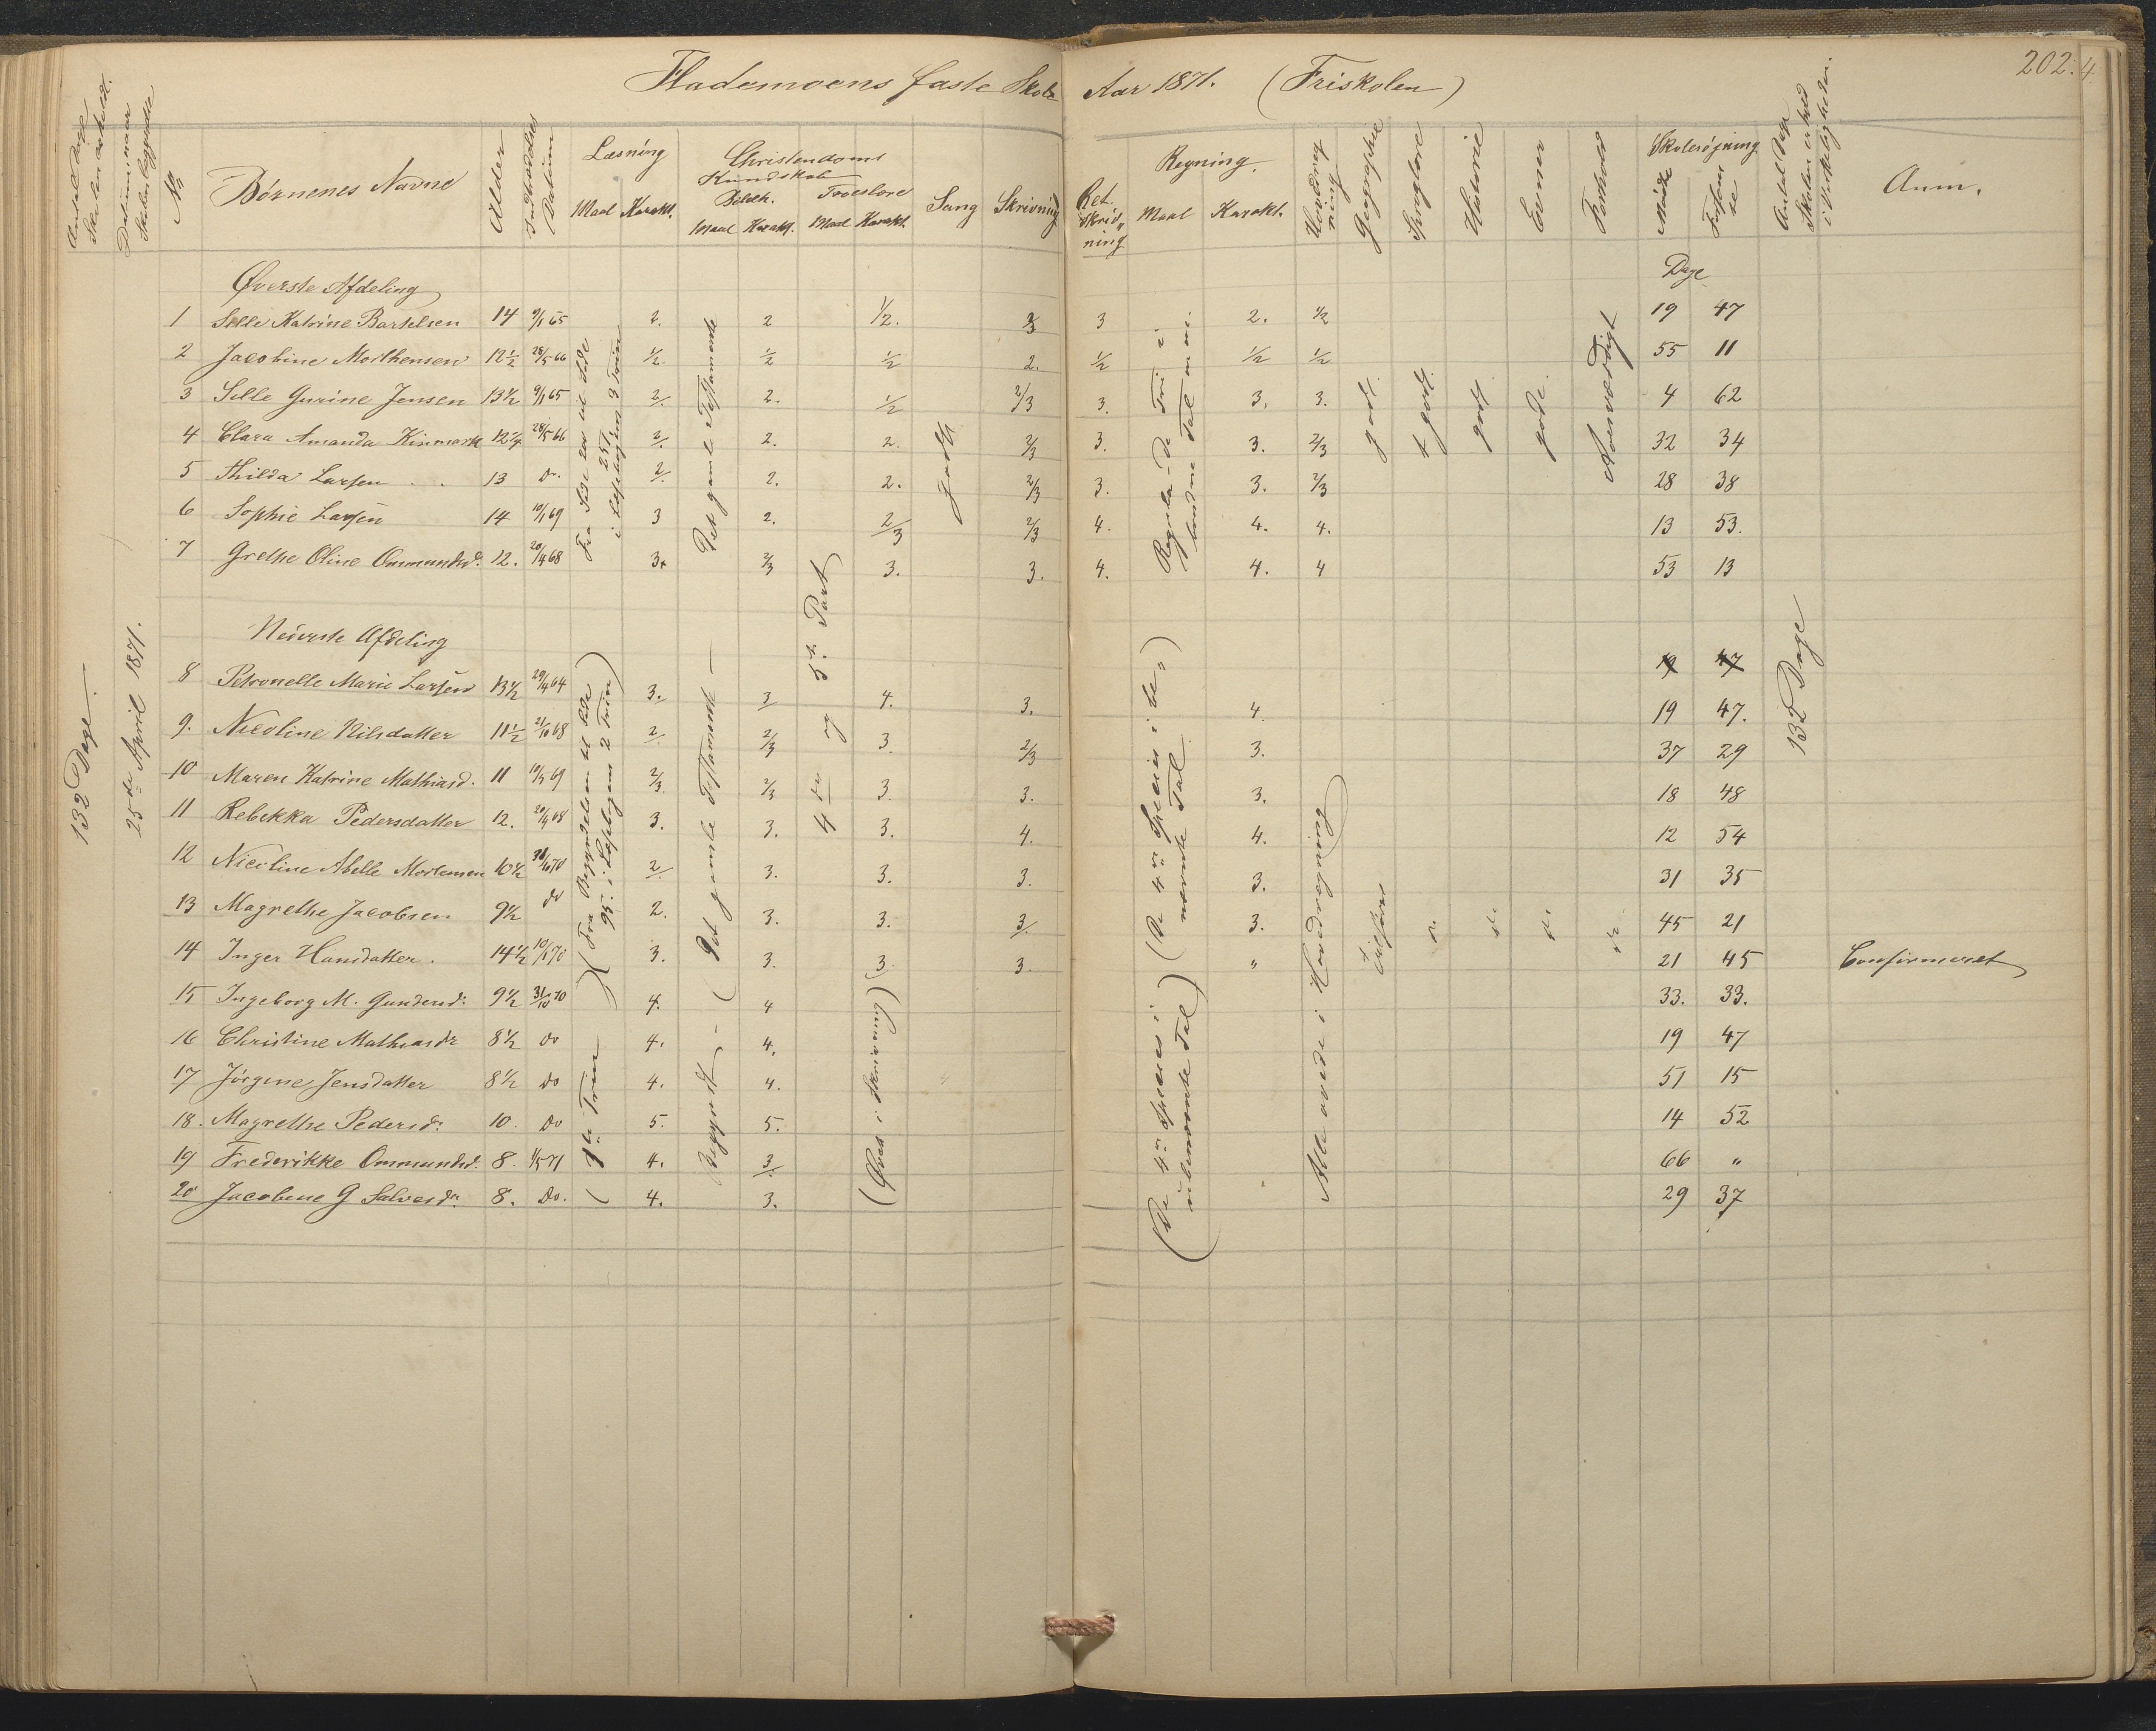 Flademoens faste Skole Aar 1871. (Friskolen)
202.
4
Antal Dage Skolen er holdt.
Datum, naar Skolen begyndte
No
Børnenes Navne
Alder
Indtrædelses Datum
Læsning
Maal Karakt.
Christendoms Kundskab
Bibelh. Troeslære
Maal Karakt. Maal Karakt.
Sang
Skrivning
Ret Skrivning
Regning.
Maal Karakt.
Hovedregning
Geographie
Sproglære
Historie
Evner
Forhold
Skolesøgning
Møde Forsømmelse
Antal Dage Skolen er holdt i Virkeligheden.
Anm.
Øverste Afdeling
Dage
1 Sille Katrine Bartelsen 14 9/1 65 2. 2 1/2. 3 3 2. 1/2 19 47
2 Jacobine Morthensen 12 1/2 28/5 66 1/2 1/2 1/2 2. 1/2 1/2 1/2 55 11
3 Sille Gurine Jensen 13 1/2 9/1 65 2/ 2. 1/2 2/3 3. 3. 3. 4 62
4 Clara Amanda Kinmark 12 1/4 28/5 66 2/ 2. 2. 2/3 3. 3. 2/3 32 34
5 Thilda Larsen 13 do 2/ 2. 2. 2/3 3. 3. 2/3 28 38
6 Sophie Larsen 14 10/1 69 3 2. 2/3 2/3 4. 4. 4. 13 53.
7 Grethe Oline Ommundsd. 12. 20/4 68 3+ 2/3 3. 3. 4. 4. 4 53 13
i Læsebogens 3 Trin
Det gamle Testamente
godt
Regula de Tri i
godt.
+ godt.
godt.
gode.
Roesværdigt
Nederste Afdeling
19 47
8 Petronelle Marie Larsen 13 1/2 29/4 64 3. 3/ 4. 3. 4. 19 47.
9. Nicoline Nilsdatter 11 1/2 21/10 68 2/ 2/3 3. 2/3 3. 37 29
10 Maren Katrine Mathiasd. 11 10/4 69 2/3 2/3 3. 3. 3. 18 48
11 Rebekka Pedersdatter 12. 20/4 68 3. 3. 3. 4. 4. 12 54
12 Nicoline Abelle Mortensen 10 1/2 31/10 70 2/ 3. 3. 3. 3. 31 35
13 Magrethe Jacobsen 9 1/2 do 2. 3. 3. 3/. 3. 45 21
14 Inger Hansdatter. 14 1/2 10/1 70 3. 3. 3. 3. " 21 45 Confirmeret
15 Ingeborg M. Gundersd: 9 1/2 31/10 70 4. 4 33. 33.
16 Christine Mathiasdr 8 1/2 do 4. 4. 19 47
17 Jörgine Jensdatter 8 1/2 do 4. 4. 51 15
18. Magrethe Pedersd: 10. do 5. 5. 14 52
19 Frederikke Ommundsd. 8. 1/5 71 4. 3/ 66 "
20 Jacobine G Salvesdr. 8. Do. 4. 3. 29 37
132 Dage.
25de April 1871.
(Fra Begyndelsen til Side 95. i Læsebogens 2 Trin)
(1ste Trin)
(Det gamle Testamente
Begyndt
4de og 5te Part
(Øves i Skrivning)
(De 4re Species i benævnte Tal)
(De 4re Species i ubenævnte Tal)
Alle øvede i Hovedregning
do do do do
132 Dage